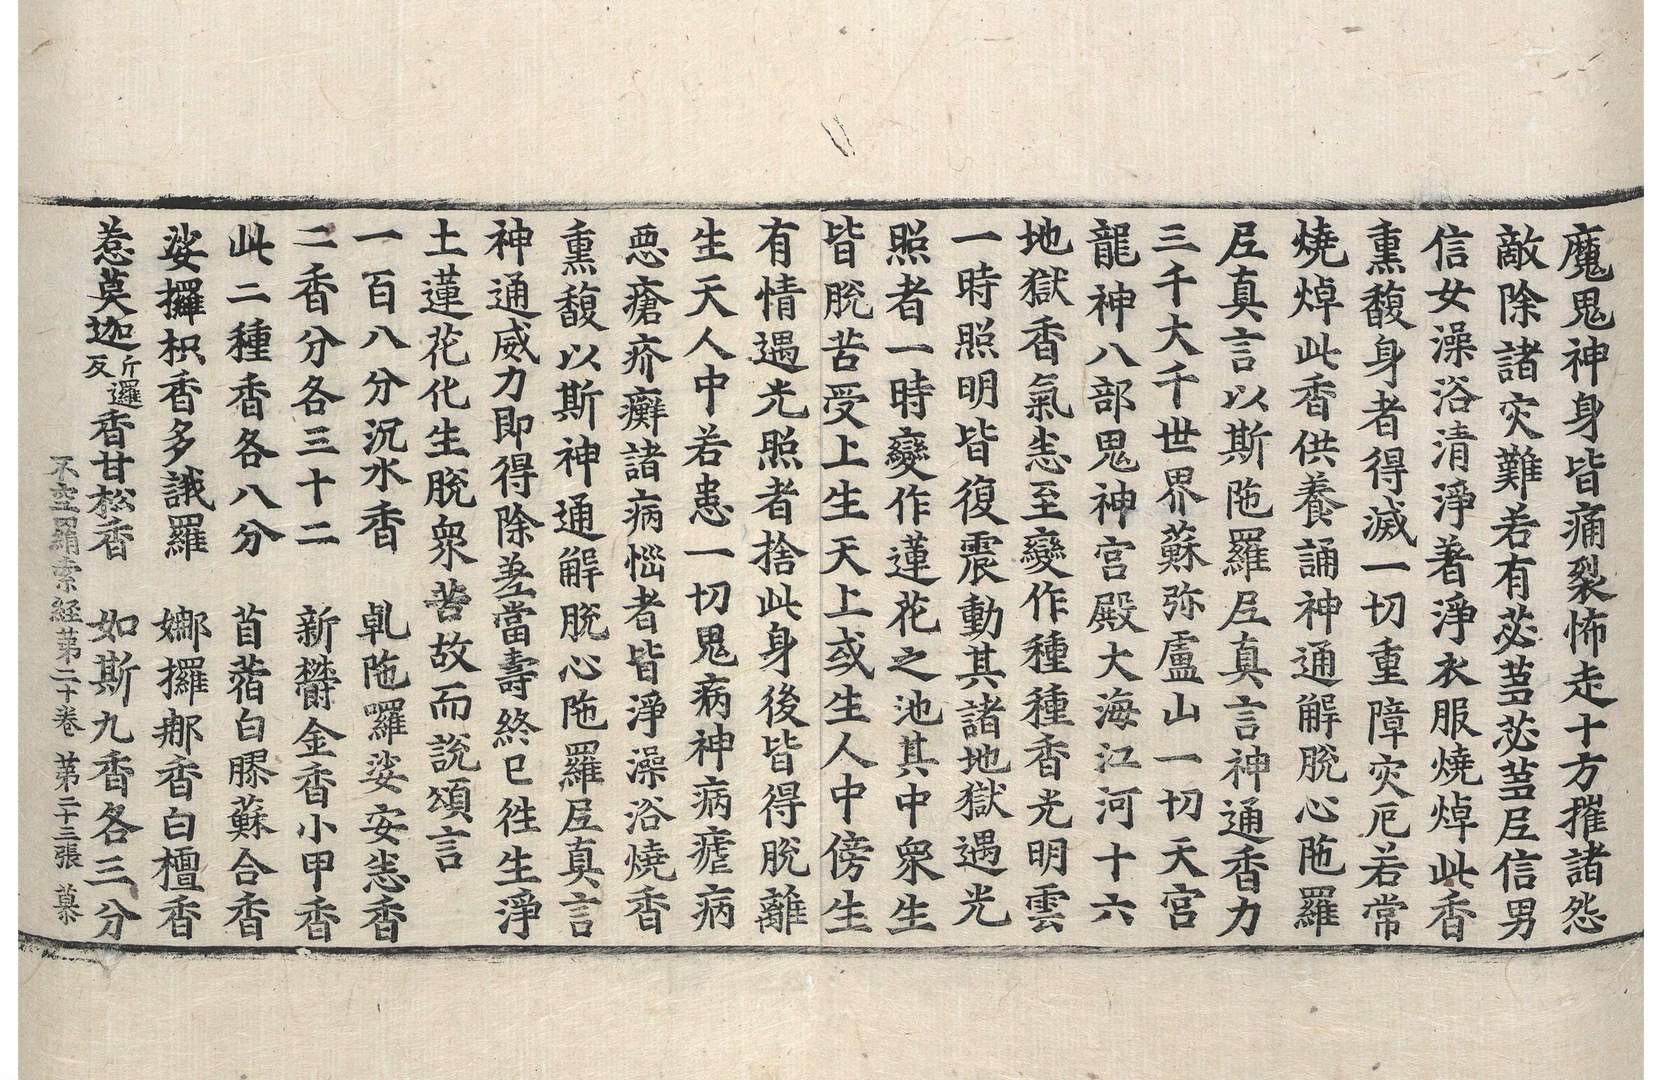 魔鬼神身皆痛裂怖走十方摧諸怨
敵除諸灾難若有苾蒭苾蒭尼信男
信女澡浴清淨著淨衣服燒焯此香
熏馥身者得滅一切重障灾厄若常
燒焯此香供養誦神通解脫心陁羅
尼真言以斯陁羅尼真言神通香力
三千大千世界蘇弥盧山一切天宮
龍神八部鬼神宮殿大海江河十六
地獄香氣悉至變作種種香光明雲
一時照明皆復震動其諸地獄遇光
照者一時變作蓮花之池其中衆生
皆脫苦受上生天上或生人中傍生
有情遇光照者捨此身後皆得脫離
生天人中若患一切鬼病神病瘧病
惡瘡疥癬諸病惱者皆淨澡浴燒香
熏馥以斯神通解脫心陁羅尼真言
神通威力即得除差當壽終已往生淨
土蓮花化生脫衆苦故而說頌言
一百八分沉水香　乹陁囉娑安悉香
二香分各三十二　新欝金香小甲香
此二種香各八分　苜蓿白膠蘇合香
娑攞枳香多誐羅　娜攞那香白檀香
惹莫迦斤邏反香甘松香　如斯九香各三分
不空羂索經第二十卷　第二十三張　慕